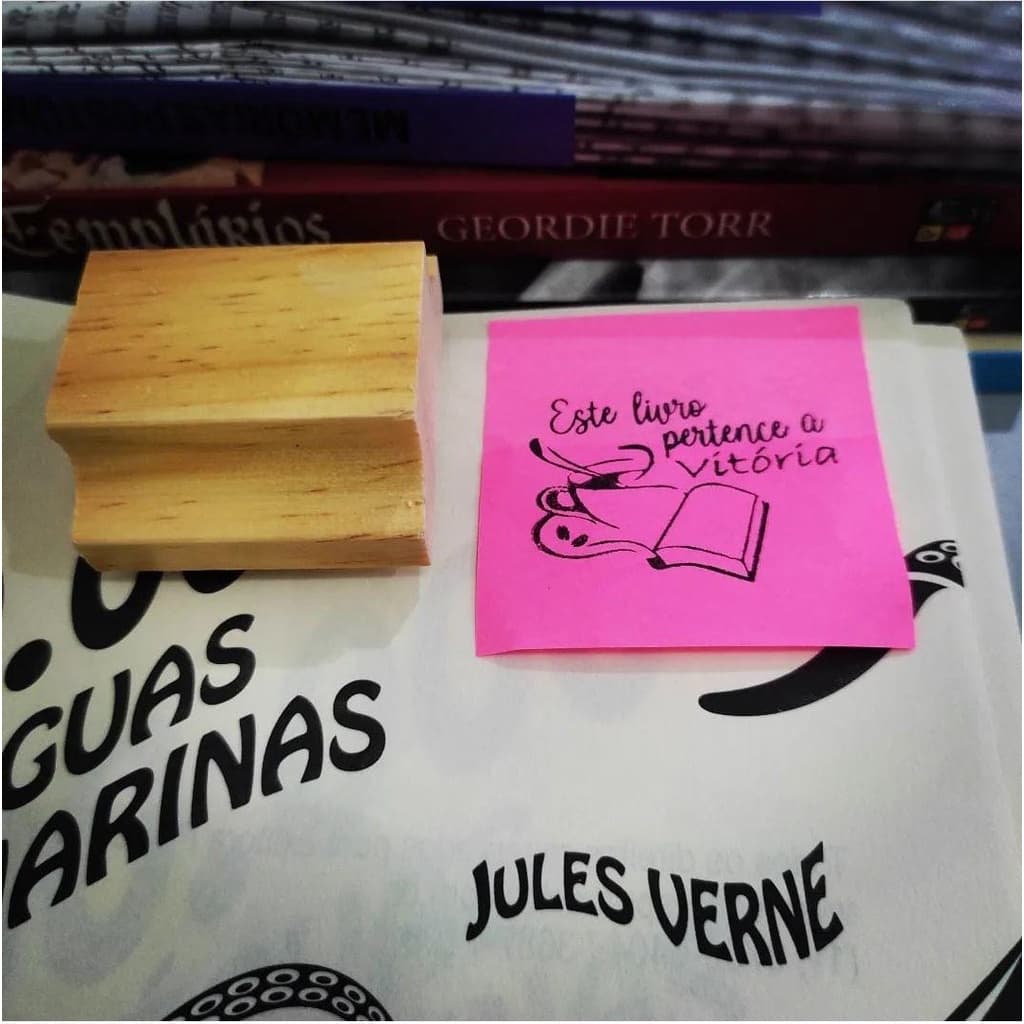 MEMÓRIAS PÓSTUM
Templários GEORDIE TORR
Este livro
pertence a
Vitória
GUAS
ARINAS
JULES VERNE